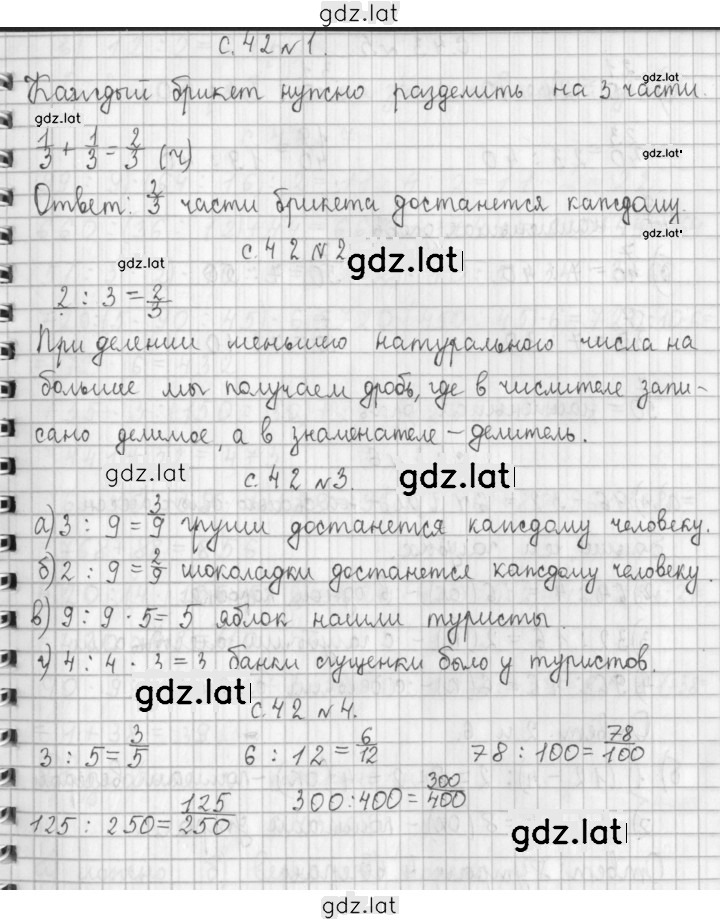 gdz.lat
с.42 №1.
Каждый брикет нужно разделить на 3 части.
gdz.lat
gdz.lat
1/3 + 1/3 = 2/3 (ч)
gdz.lat
Ответ: 2/3 части брикета достанется каждому.
gdz.lat
с.42 №2
gdz.lat
gdz.lat
2 : 3 = 2/3
При делении меньшего натурального числа на
большие мы получаем дробь, где в числителе запи-
сано делимое, а в знаменателе – делитель.
gdz.lat
с.42 №3.
gdz.lat
а) 3 : 9 = 3/9 груши достанется каждому человеку.
б) 2 : 9 = 2/9 шоколадки достанется каждому человеку.
в) 9 : 9 · 5 = 5 яблок нашли туристы.
г) 4 : 4 · 3 = 3 банки сгущенки было у туристов.
gdz.lat
с.42 №4.
3 : 5 = 3/5 6 : 12 = 6/12 78 : 100 = 78/100
125 : 250 = 125/250 300 : 400 = 300/400
gdz.lat
gdz.lat